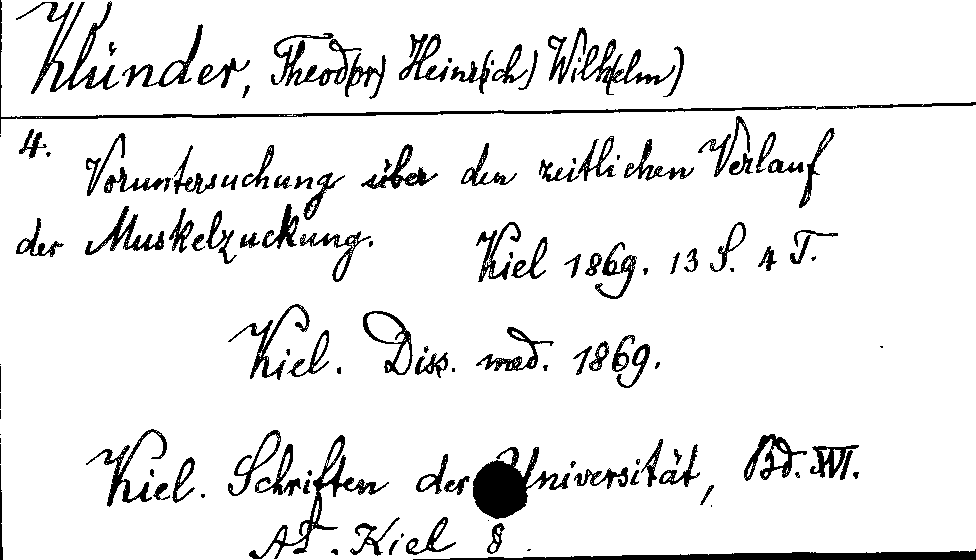 Klünder, Theod(or) Heinr(ich) Wilh(elm)
4.
Voruntersuchung über den zeitlichen Verlauf
der Muskelzuckung.
Kiel 1869. 13 S. 4 T.
Kiel. Diss. med. 1869.
Kiel. Schriften der Universität, Bd. XVI.
AT. Kiel 8.